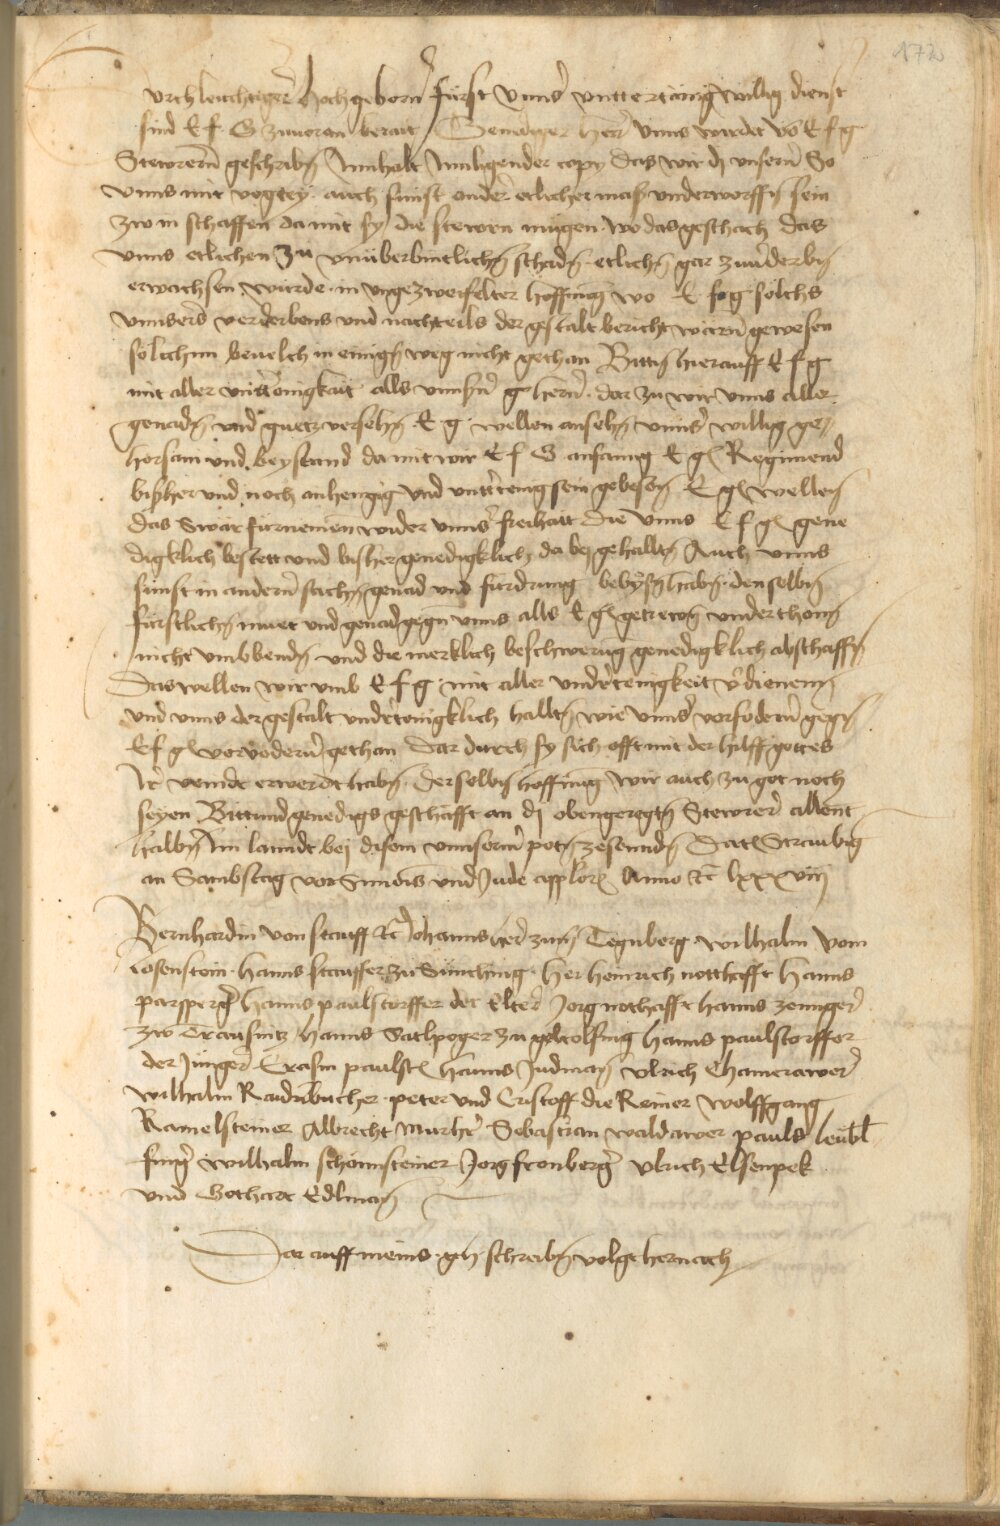 172
Durchleuchtiger Hochgeborn Fürst Unnser unttertanig willig dienst
sind E f G zuuoran berait Genediger Herr Unns wirdet von E f g
Stewrern geschriben Innhalt Innligender copy das wir dy unsern So
unns mit vogtey auch sunst onder etlicher mass underworffn sein
zw in schaffen damit sy die stewrn mügen wo das geschach das
unns etlichen zu unüberbintlichn schadn etlichn gar zuuerderbn
erwachsen wurde in ungezweifelter hoffnung wo E f g solchs
unnsers verderbens und nachteils der gestalt bericht wärn gewesen
solichnn beuelch in einign weg nicht gethan Bittn hierauff E f g
mit aller unttertänigkait alls unnsern g hern dar zu wir unns aller
genadn und guetz versehn E g wellen ansehn unnser willig ge
horsam und beystand damit wir E f G anfanng E g Regimend
bissher und noch anhenngig und unttertenig sein gebesen E g wellen
das Swär fürnemen wider unnser freihait die unns E f g gene
digklich bestett und bisher genedigklich da bej gehalltn Auch unns
sunst in andern sachn genad und fürdrung bebysn habn denselbn
fürstlichn muet und genad gegn unns alls E g getrewn underthon
nicht umbbendn und die mercklich beschwerung genedigklich abschaffn
Das wellen wir umb E f g mit aller undertenigkeit verdienenn
und unns der gestalt undertenigklich halltn wie unnser vorfodern gegn
E f g vorvodern gethan Dar durch sy sich offt mit der hilff gottes
Ir veindt erwerdt habn derselbn hoffnung wir auch zu got noch
seyen Bittund genedigs geschäfft an dj obengeregtn Stewrer allent
halbn Im lanndt bej disem unnserm potn zesenndn Dat Straubing
an Sambstag vor Simonis und Jude applor Anno etc lxxxviij
Bernhardin von Stauff etc Johanns her zum Degnberg wilhalm vom
Losenstein Hanns Stauffer zu Sünching Her Heinrich notthafft Hanns
parsperger Hanns paulstorffer der Elter Jorg nothafft hanns zennger
zw Trausnitz Hanns Satlpoger zu geltolfing Hanns paulstorffer
der Jünger Erasm paulst Hanns Judman Ulrich Chamerawer
wilhalm Raidnbucher peter und Cristoff die Reiner wolffgang
Ramelsteiner Albrecht murher Sebastian waldawer pauls leubl
finger wilhalm schönnsteiner Jorg fronberger Ulrich Elsenpek
und Gothart Edlman
Dar auff meins gn schreibn volgt hernach